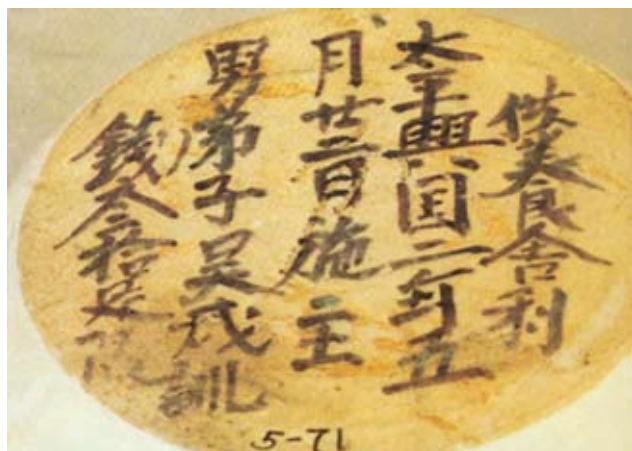 供養舍利
太平興国二年五
月廿二日施主
男弟子吴成訓
錢叁拾足陌
5-71